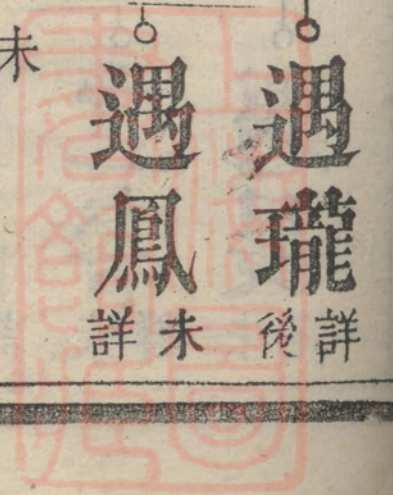 遇瓏
詳後
遇鳳
未詳
未